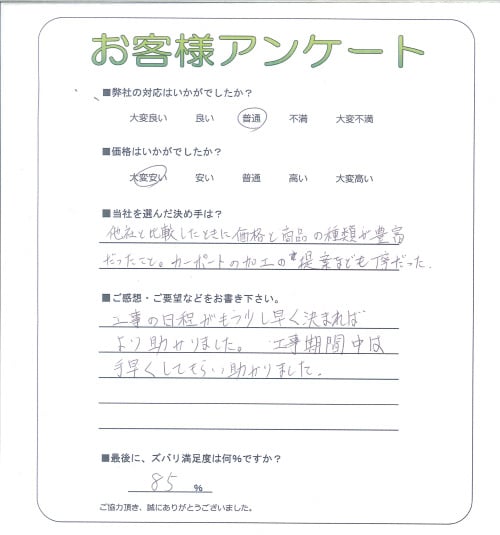 お客様アンケート
■弊社の対応はいかがでしたか？
大変良い 良い 普通 不満 大変不満
■価格はいかがでしたか？
大変安い 安い 普通 高い 大変高い
■当社を選んだ決め手は？
他社と比較したときに価格と商品の種類が豊富
だったこと。カーポートの加工の提案なども
■ご感想・ご要望などをお書き下さい。
工事の日程がもう少し早く決まれば
より助かりました。 工事期間中は
手早くしてもらい助かりました。
■最後に、ズバリ満足度は何％ですか？
85 ％
ご協力頂き、誠にありがとうございました。